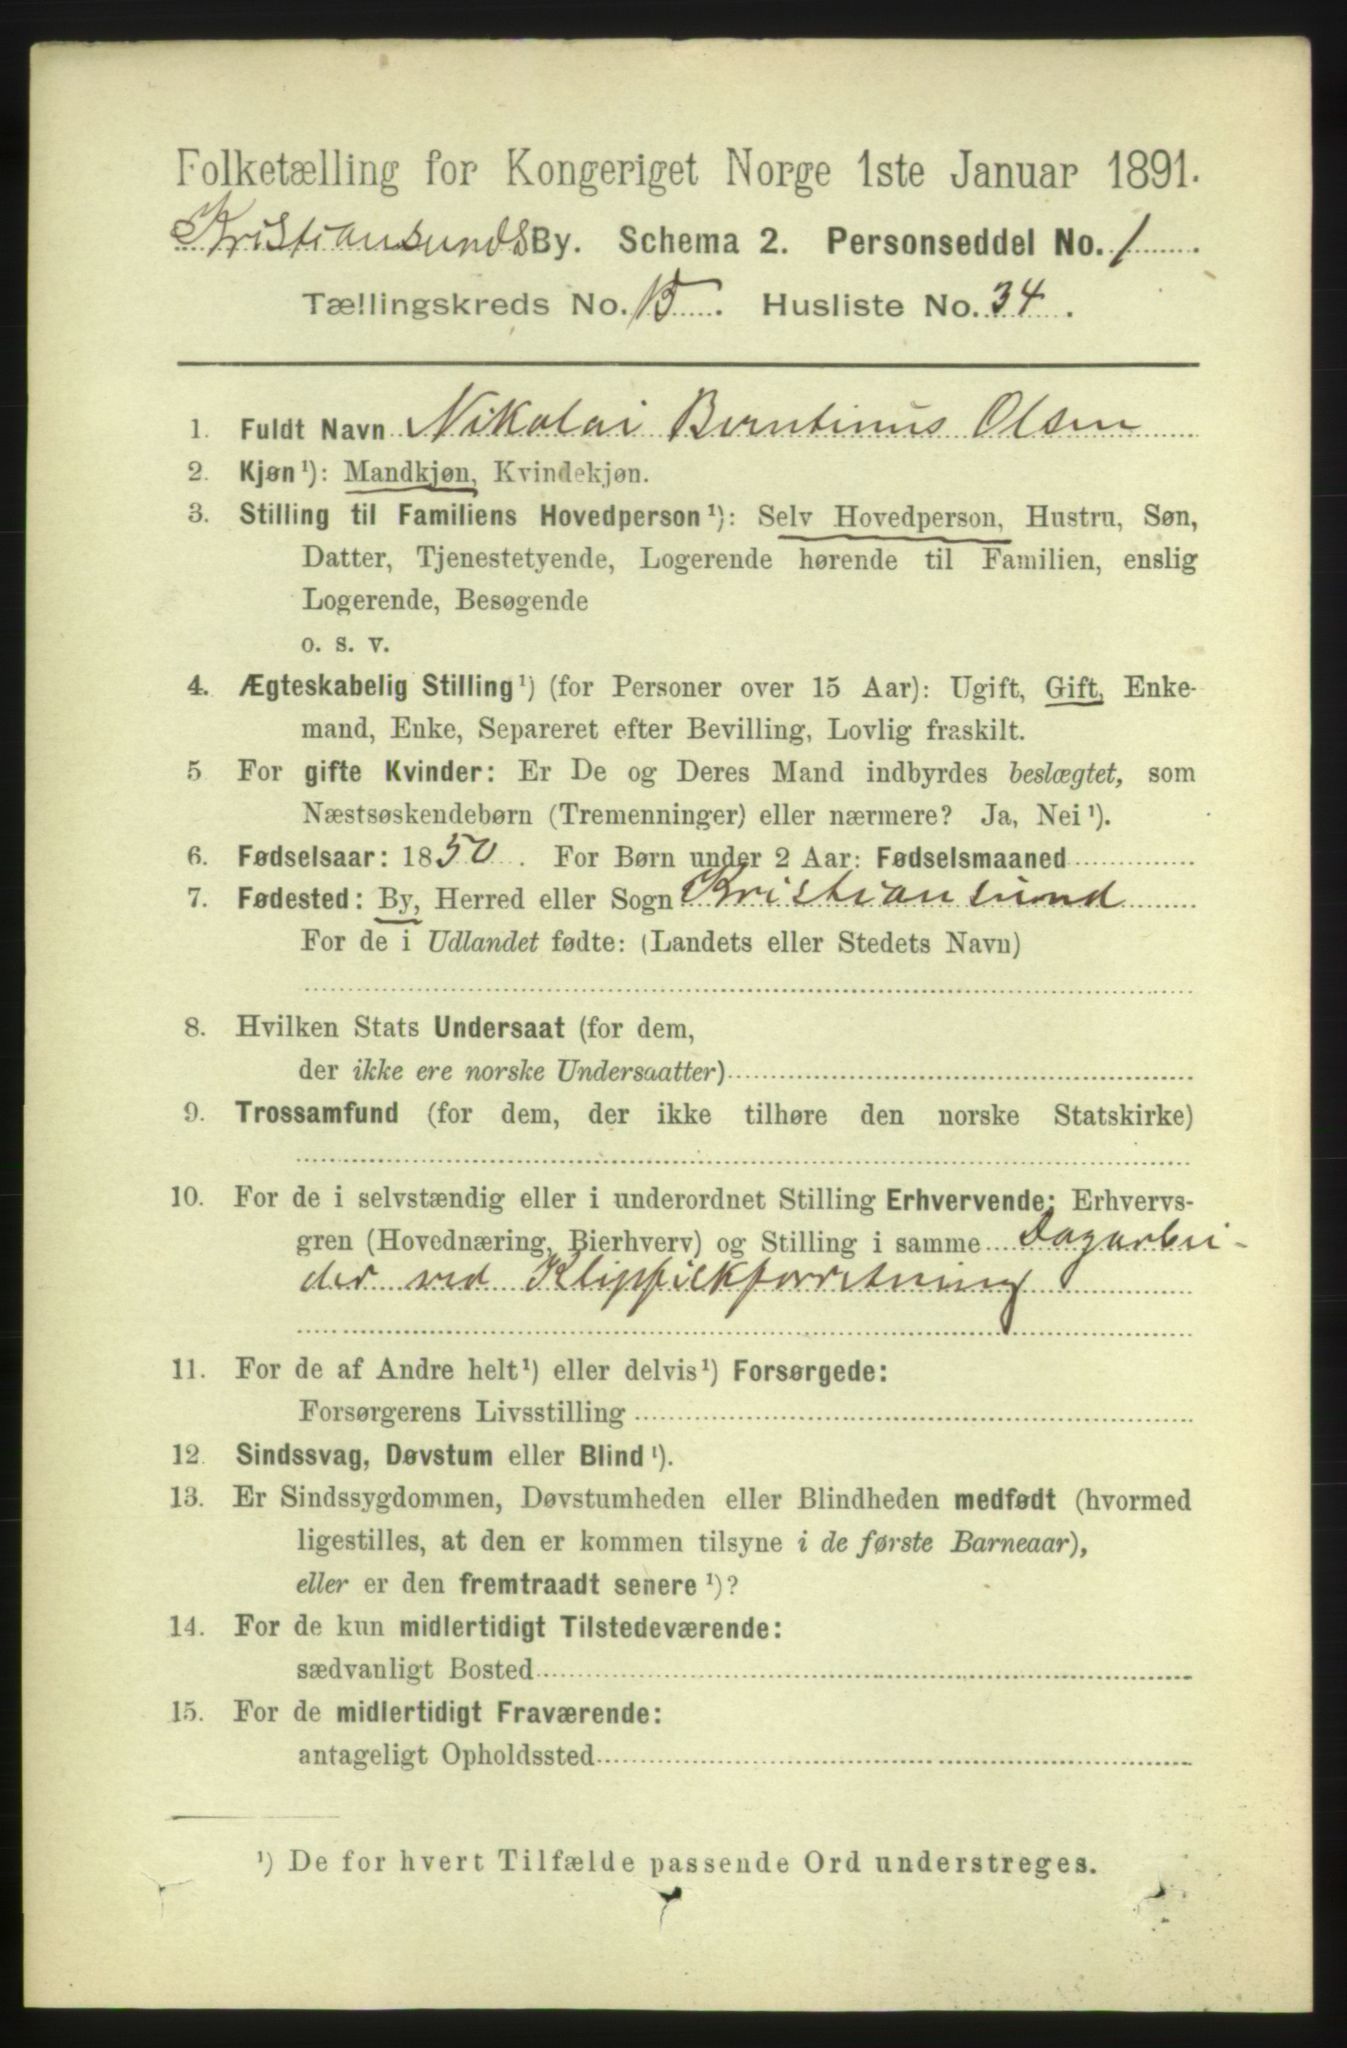 Folketælling for Kongeriget Norge 1ste Januar 1891.
Kristiansunds By. Schema 2. Personseddel No. 1
Tællingskreds No. 15. Husliste No. 34.
1. Fuldt Navn Nikolai Berntinus Olsen
2. Kjøn¹): Mandkjøn, Kvindekjøn.
3. Stilling til Familiens Hovedperson¹): Selv Hovedperson, Hustru, Søn,
Datter, Tjenestetyende, Logerende hørende til Familien, enslig
Logerende, Besøgende
o. s. v.
4. Ægteskabelig Stilling¹) (for Personer over 15 Aar): Ugift, Gift, Enke-
mand, Enke, Separeret efter Bevilling, Lovlig fraskilt.
5 For gifte Kvinder: Er De og Deres Mand indbyrdes beslægtet, som
Næstsøskendebørn (Tremenninger) eller nærmere? Ja, Nei¹).
6. Fødselsaar: 1850. For Børn under 2 Aar: Fødselsmaaned
7. Fødested: By, Herred eller Sogn Kristiansund
For de i Udlandet fødte: (Landets eller Stedets Navn)
8. Hvilken Stats Undersaat (for dem,
der ikke ere norske Undersaatter)
9. Trossamfund (for dem, der ikke tilhøre den norske Statskirke)
10. For de i selvstændig eller i underordnet Stilling Erhvervende: Erhvervs-
gren (Hovednæring, Bierhverv) og Stilling i samme Dagarbei-
der ved Klipfiskforretning
11. For de af Andre helt¹) eller delvis¹) Forsørgede:
Forsørgerens Livsstilling
12. Sindssvag, Døvstum eller Blind¹).
13. Er Sindssygdommen, Døvstumheden eller Blindheden medfødt (hvormed
ligestilles, at den er kommen tilsyne i de første Barneaar),
eller er den fremtraadt senere¹)?
14. For de kun midlertidigt Tilstedeværende:
sædvanligt Bosted
15. For de midlertidigt Fraværende:
antageligt Opholdssted
¹) De for hvert Tilfælde passende Ord understreges.